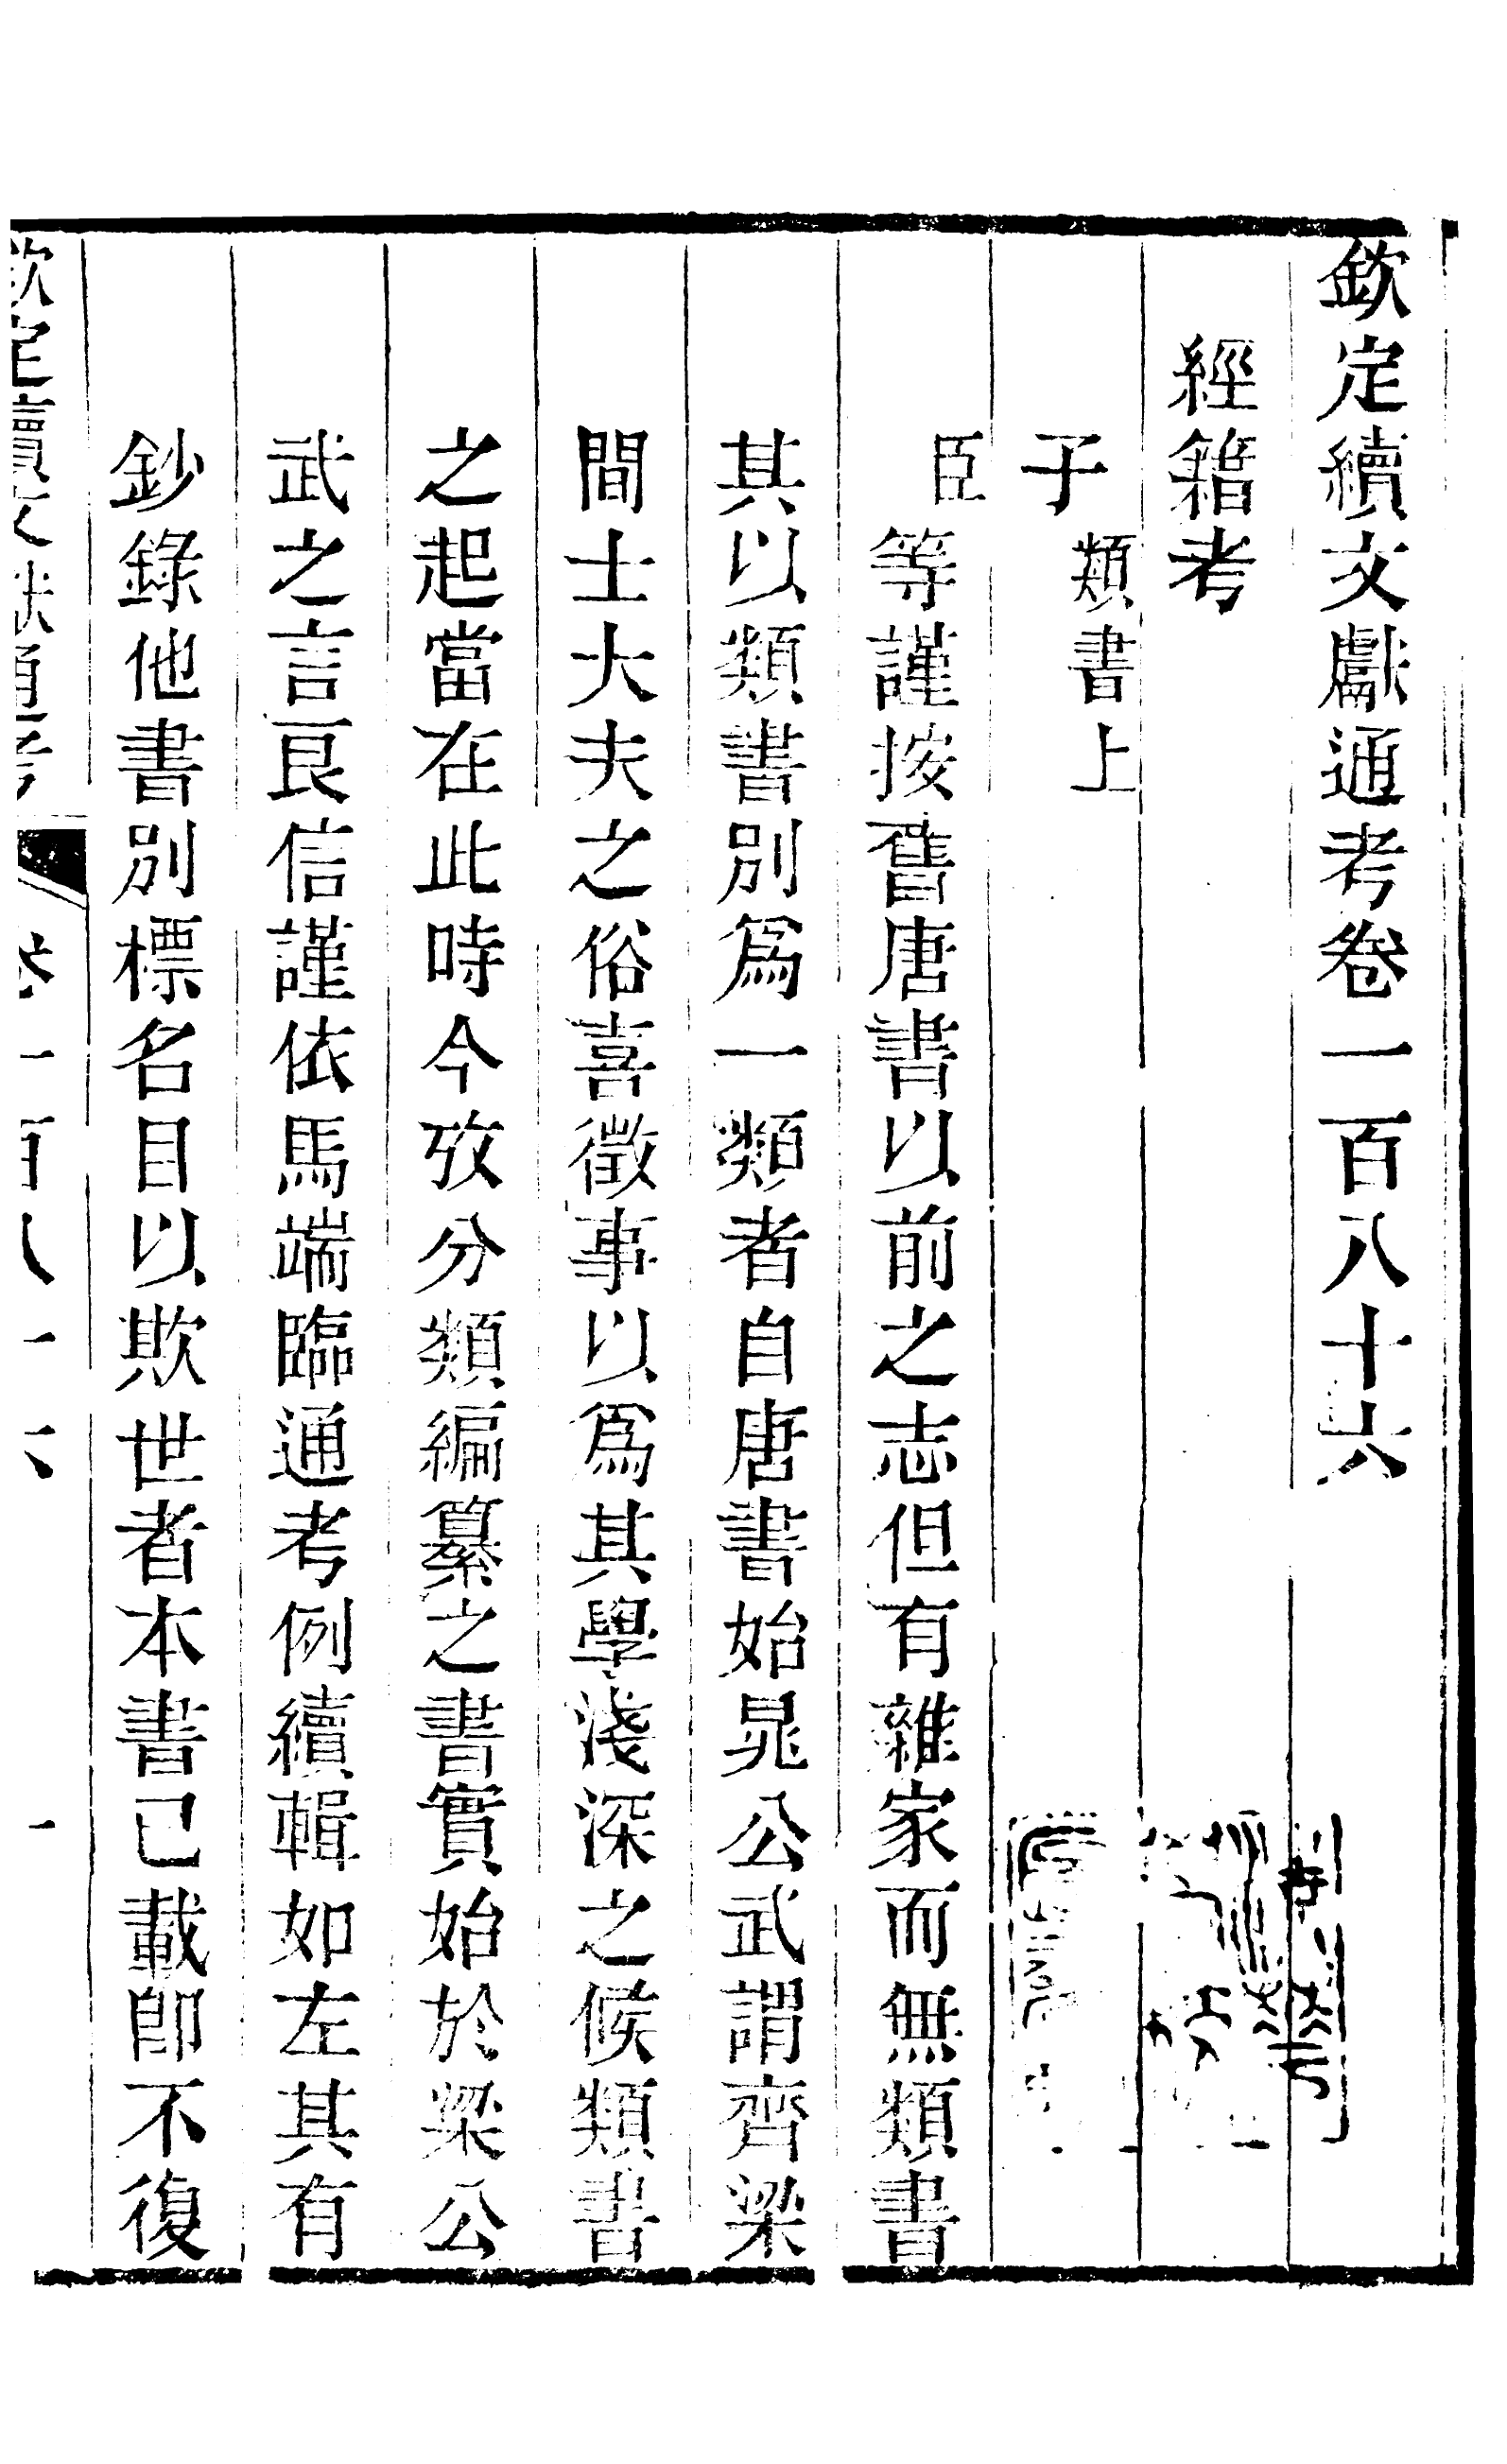 欽定續文獻通考卷一百八十六
經籍考
子類書上
臣等謹按舊唐書以前之志但有雜家而無類書
其以類書別爲一類者自唐書始晁公武謂齊梁
間士大夫之俗喜徵事以爲其學淺深之候類書
之起當在此時今攷分類編纂之書實始於梁公
武之言良信謹依馬端臨通考例續輯如左其有
鈔錄他書別標名目以欺世者本書已載卽不復